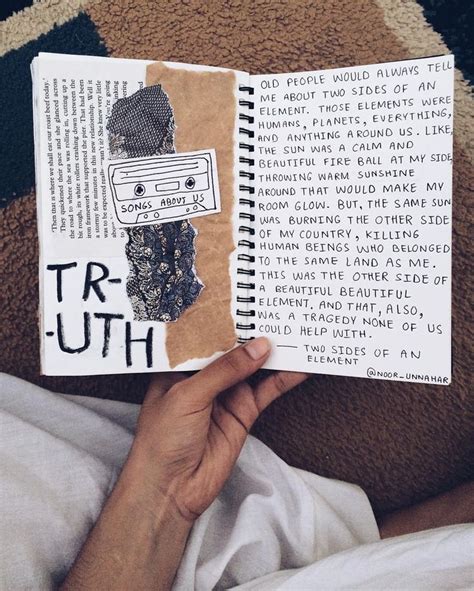 'Then that is where we shall eat our roast beef today.'
They quickened their pace and she glanced across
where the sea was rolling in, cutting up a
SONGS ABOUT US
TR-
-UTH
OLD PEOPLE WOULD ALWAYS TELL
ME ABOUT TWO SIDES OF AN
ELEMENT. THOSE ELEMENTS WERE
HUMANS, PLANETS, EVERYTHING,
AND ANYTHING AROUND US. LIKE,
THE SUN WAS A CALM AND
BEAUTIFUL FIRE BALL AT MY SIDE,
THROWING WARM SUNSHINE
AROUND THAT WOULD MAKE MY
ROOM GLOW. BUT, THE SAME SUN
WAS BURNING THE OTHER SIDE
OF MY COUNTRY, KILLING
HUMAN BEINGS WHO BELONGED
TO THE SAME LAND AS ME.
THIS WAS THE OTHER SIDE OF
A BEAUTIFUL BEAUTIFUL
ELEMENT. AND THAT, ALSO,
WAS A TRAGEDY NONE OF US
COULD HELP WITH.
— TWO SIDES OF AN
ELEMENT
@NOOR_UNNAHAR